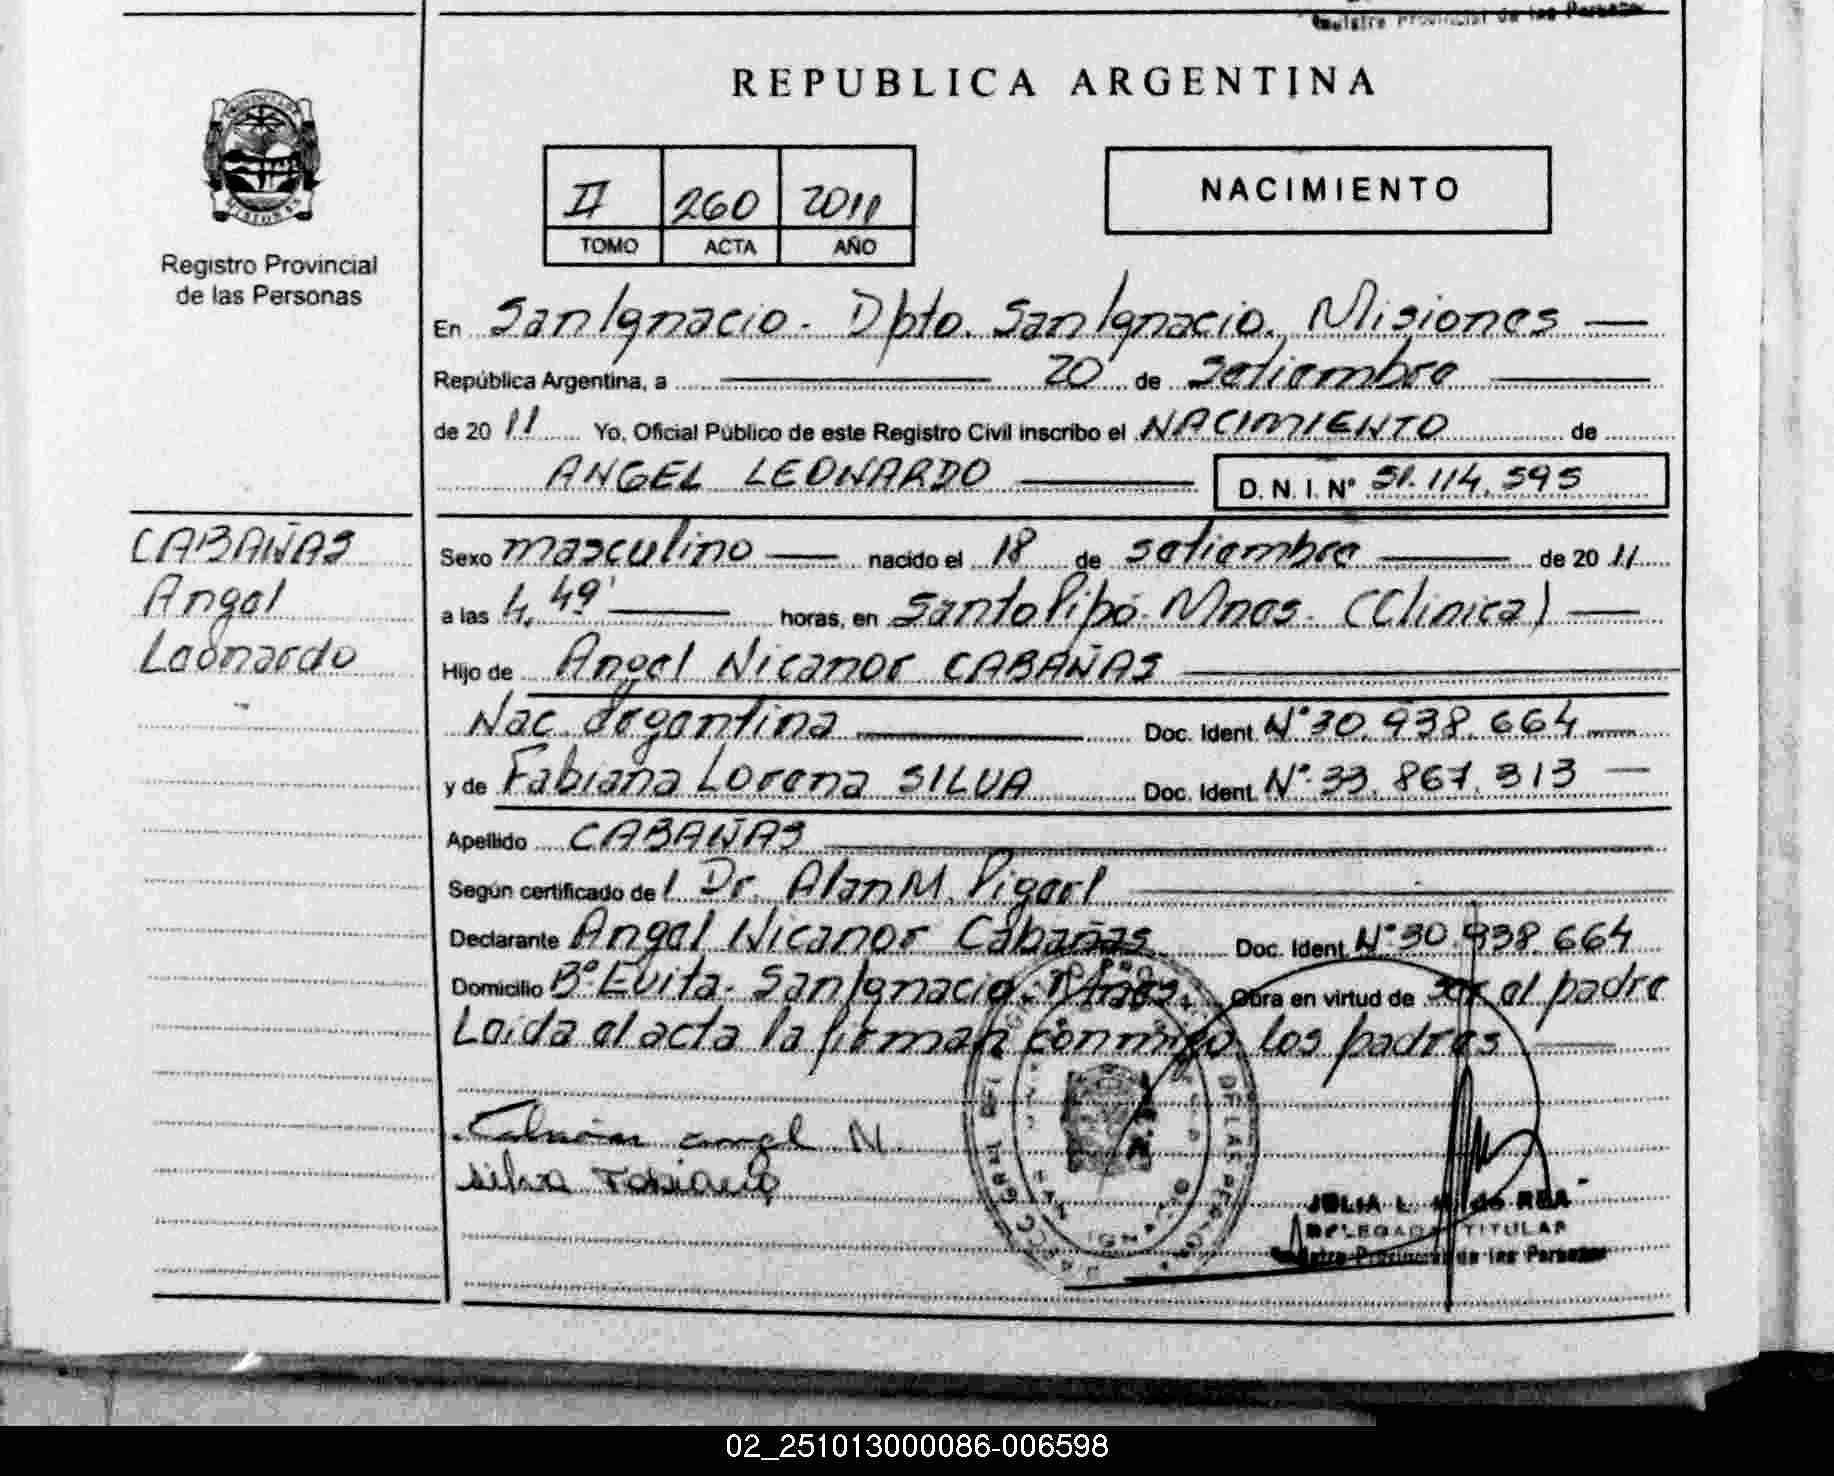 Registro Provincial de las Personas
REPUBLICA ARGENTINA
PROVINCIA
MISIONES
Registro Provincial
de las Personas
II 260 2011
TOMO ACTA AÑO
NACIMIENTO
En San Ignacio. Dpto. San Ignacio. Misiones
República Argentina, a 20 de Setiembre
de 2011 Yo, Oficial Público de este Registro Civil inscribo el NACIMIENTO de
ANGEL LEONARDO D. N. I. N° 51.114.595
CABAÑAS
Angel
Leonardo
Sexo masculino nacido el 18 de setiembre de 2011
a las 4,49' horas, en Santo Pipó. Mnes. (Clinica)
Hijo de Angel Nicanor CABAÑAS
Nac. Argentina Doc. Ident. N° 30.938.664
y de Fabiana Lorena SILVA Doc. Ident. N°. 33.867.313
Apellido CABAÑAS
Según certificado del Dr. Alan M. Pigerl
Declarante Angel Nicanor Cabañas Doc. Ident. N°. 30.938.664
Domicilio B° Evita. San Ignacio. Mnes. Obra en virtud de ser el padre
Leida el acta la firman conmigo los padres
angel N.
Silva Fabiana
JULIA L. de REA
DELEGADA TITULAR
Registro Provincial de las Personas
02_251013000086-006598